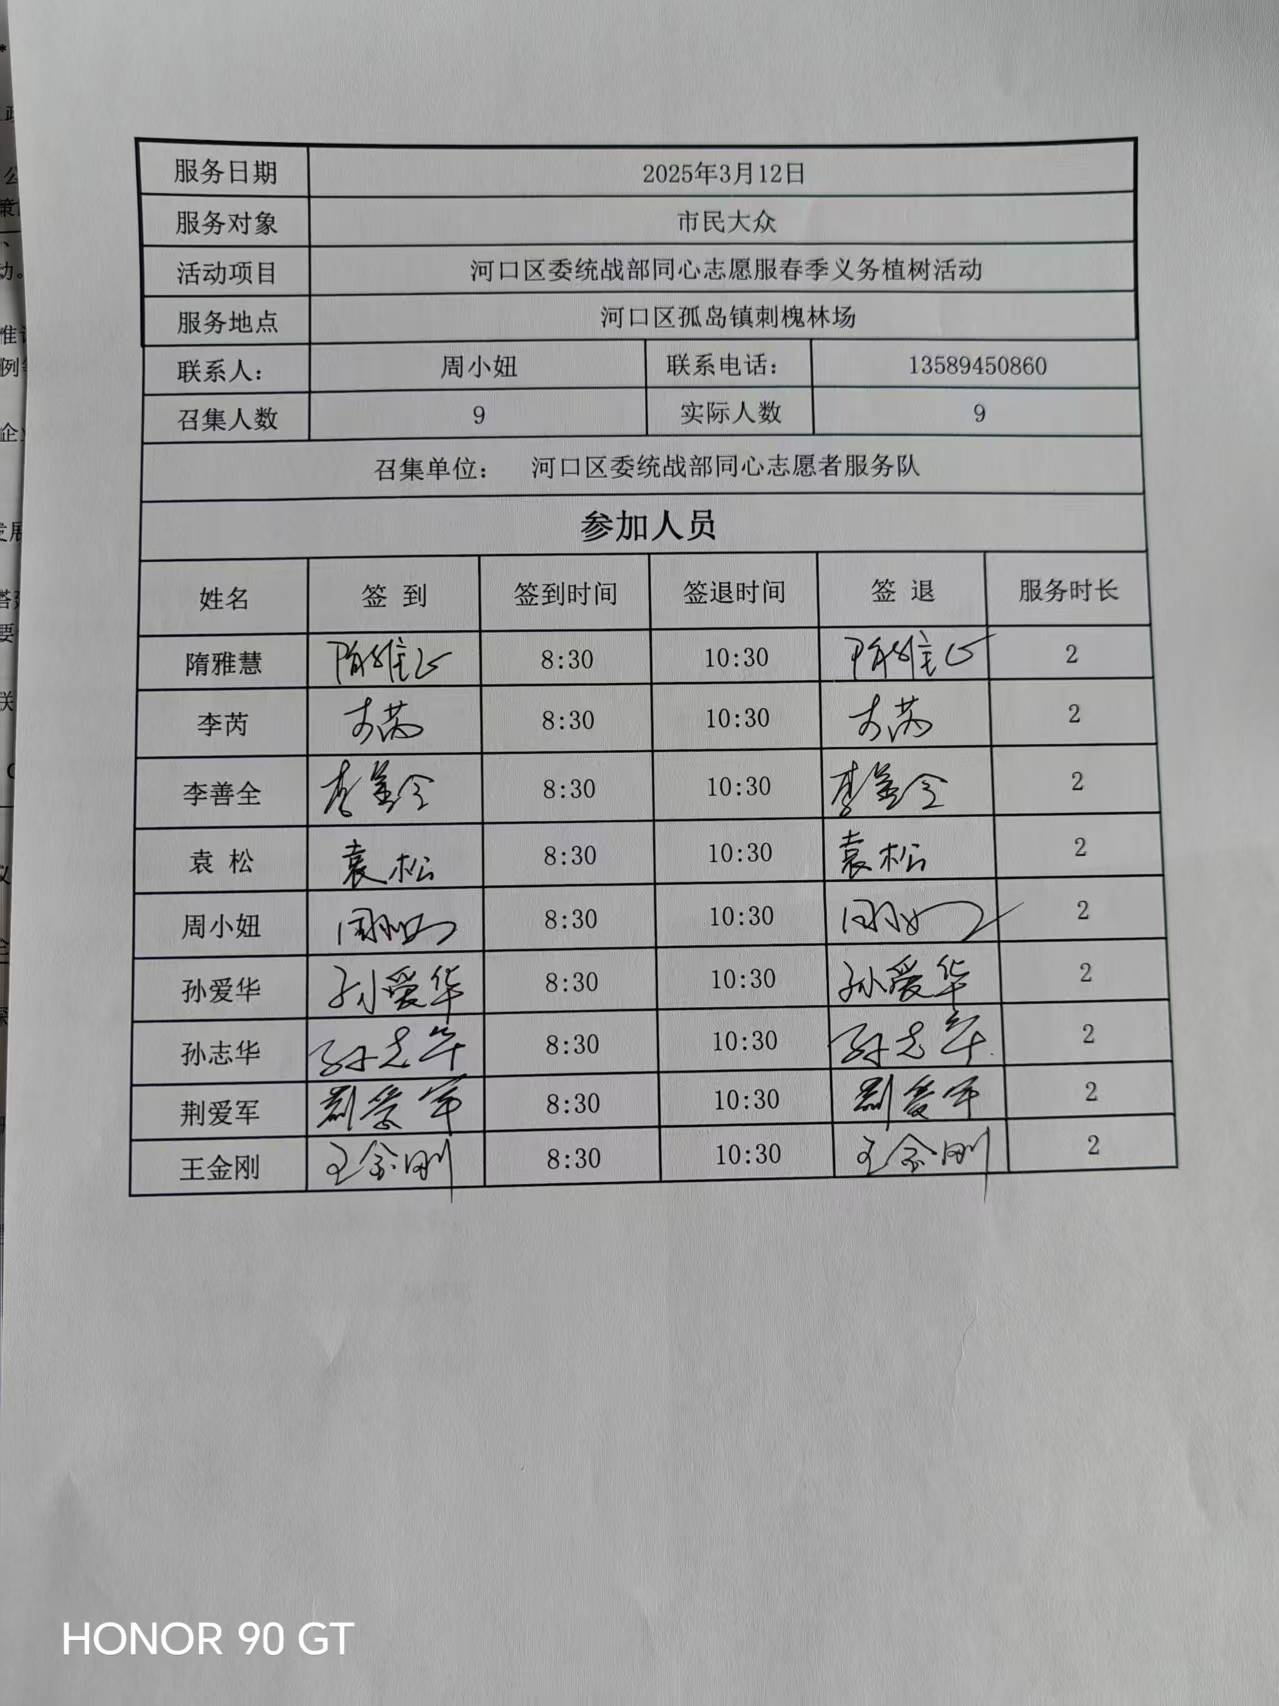 服务日期 2025年3月12日
服务对象 市民大众
活动项目 河口区委统战部同心志愿服春季义务植树活动
服务地点 河口区孤岛镇刺槐林场
联系人： 周小妞 联系电话： 13589450860
召集人数 9 实际人数 9
召集单位： 河口区委统战部同心志愿者服务队
参加人员
姓名 签 到 签到时间 签退时间 签 退 服务时长
隋雅慧 隋雅慧 8:30 10:30 隋雅慧 2
李芮 李芮 8:30 10:30 李芮 2
李善全 李善全 8:30 10:30 李善全 2
袁 松 袁松 8:30 10:30 袁松 2
周小妞 周小妞 8:30 10:30 周小妞 2
孙爱华 孙爱华 8:30 10:30 孙爱华 2
孙志华 孙志华 8:30 10:30 孙志华 2
荆爱军 荆爱军 8:30 10:30 荆爱军 2
王金刚 王金刚 8:30 10:30 王金刚 2
HONOR 90 GT